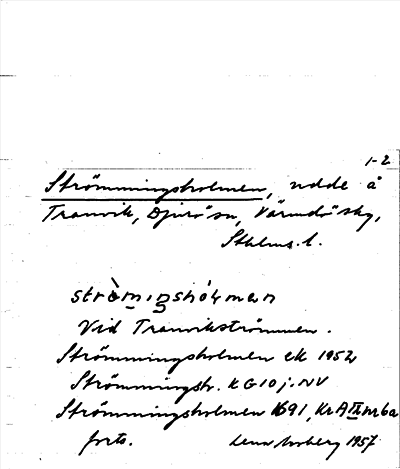 1-2
Strömmingsholmen, udde å
Tranvik, Djurö sn, Värmdö skg,
Sthlms. l.
strò̀mıŋshólman
Vid Tranvikströmmen.
Strömmingsholmen ek 1952
Strömmingsh. KG10j. NV
Strömmingsholmen 1691, Kr A IX nr 6a
forts. 1957